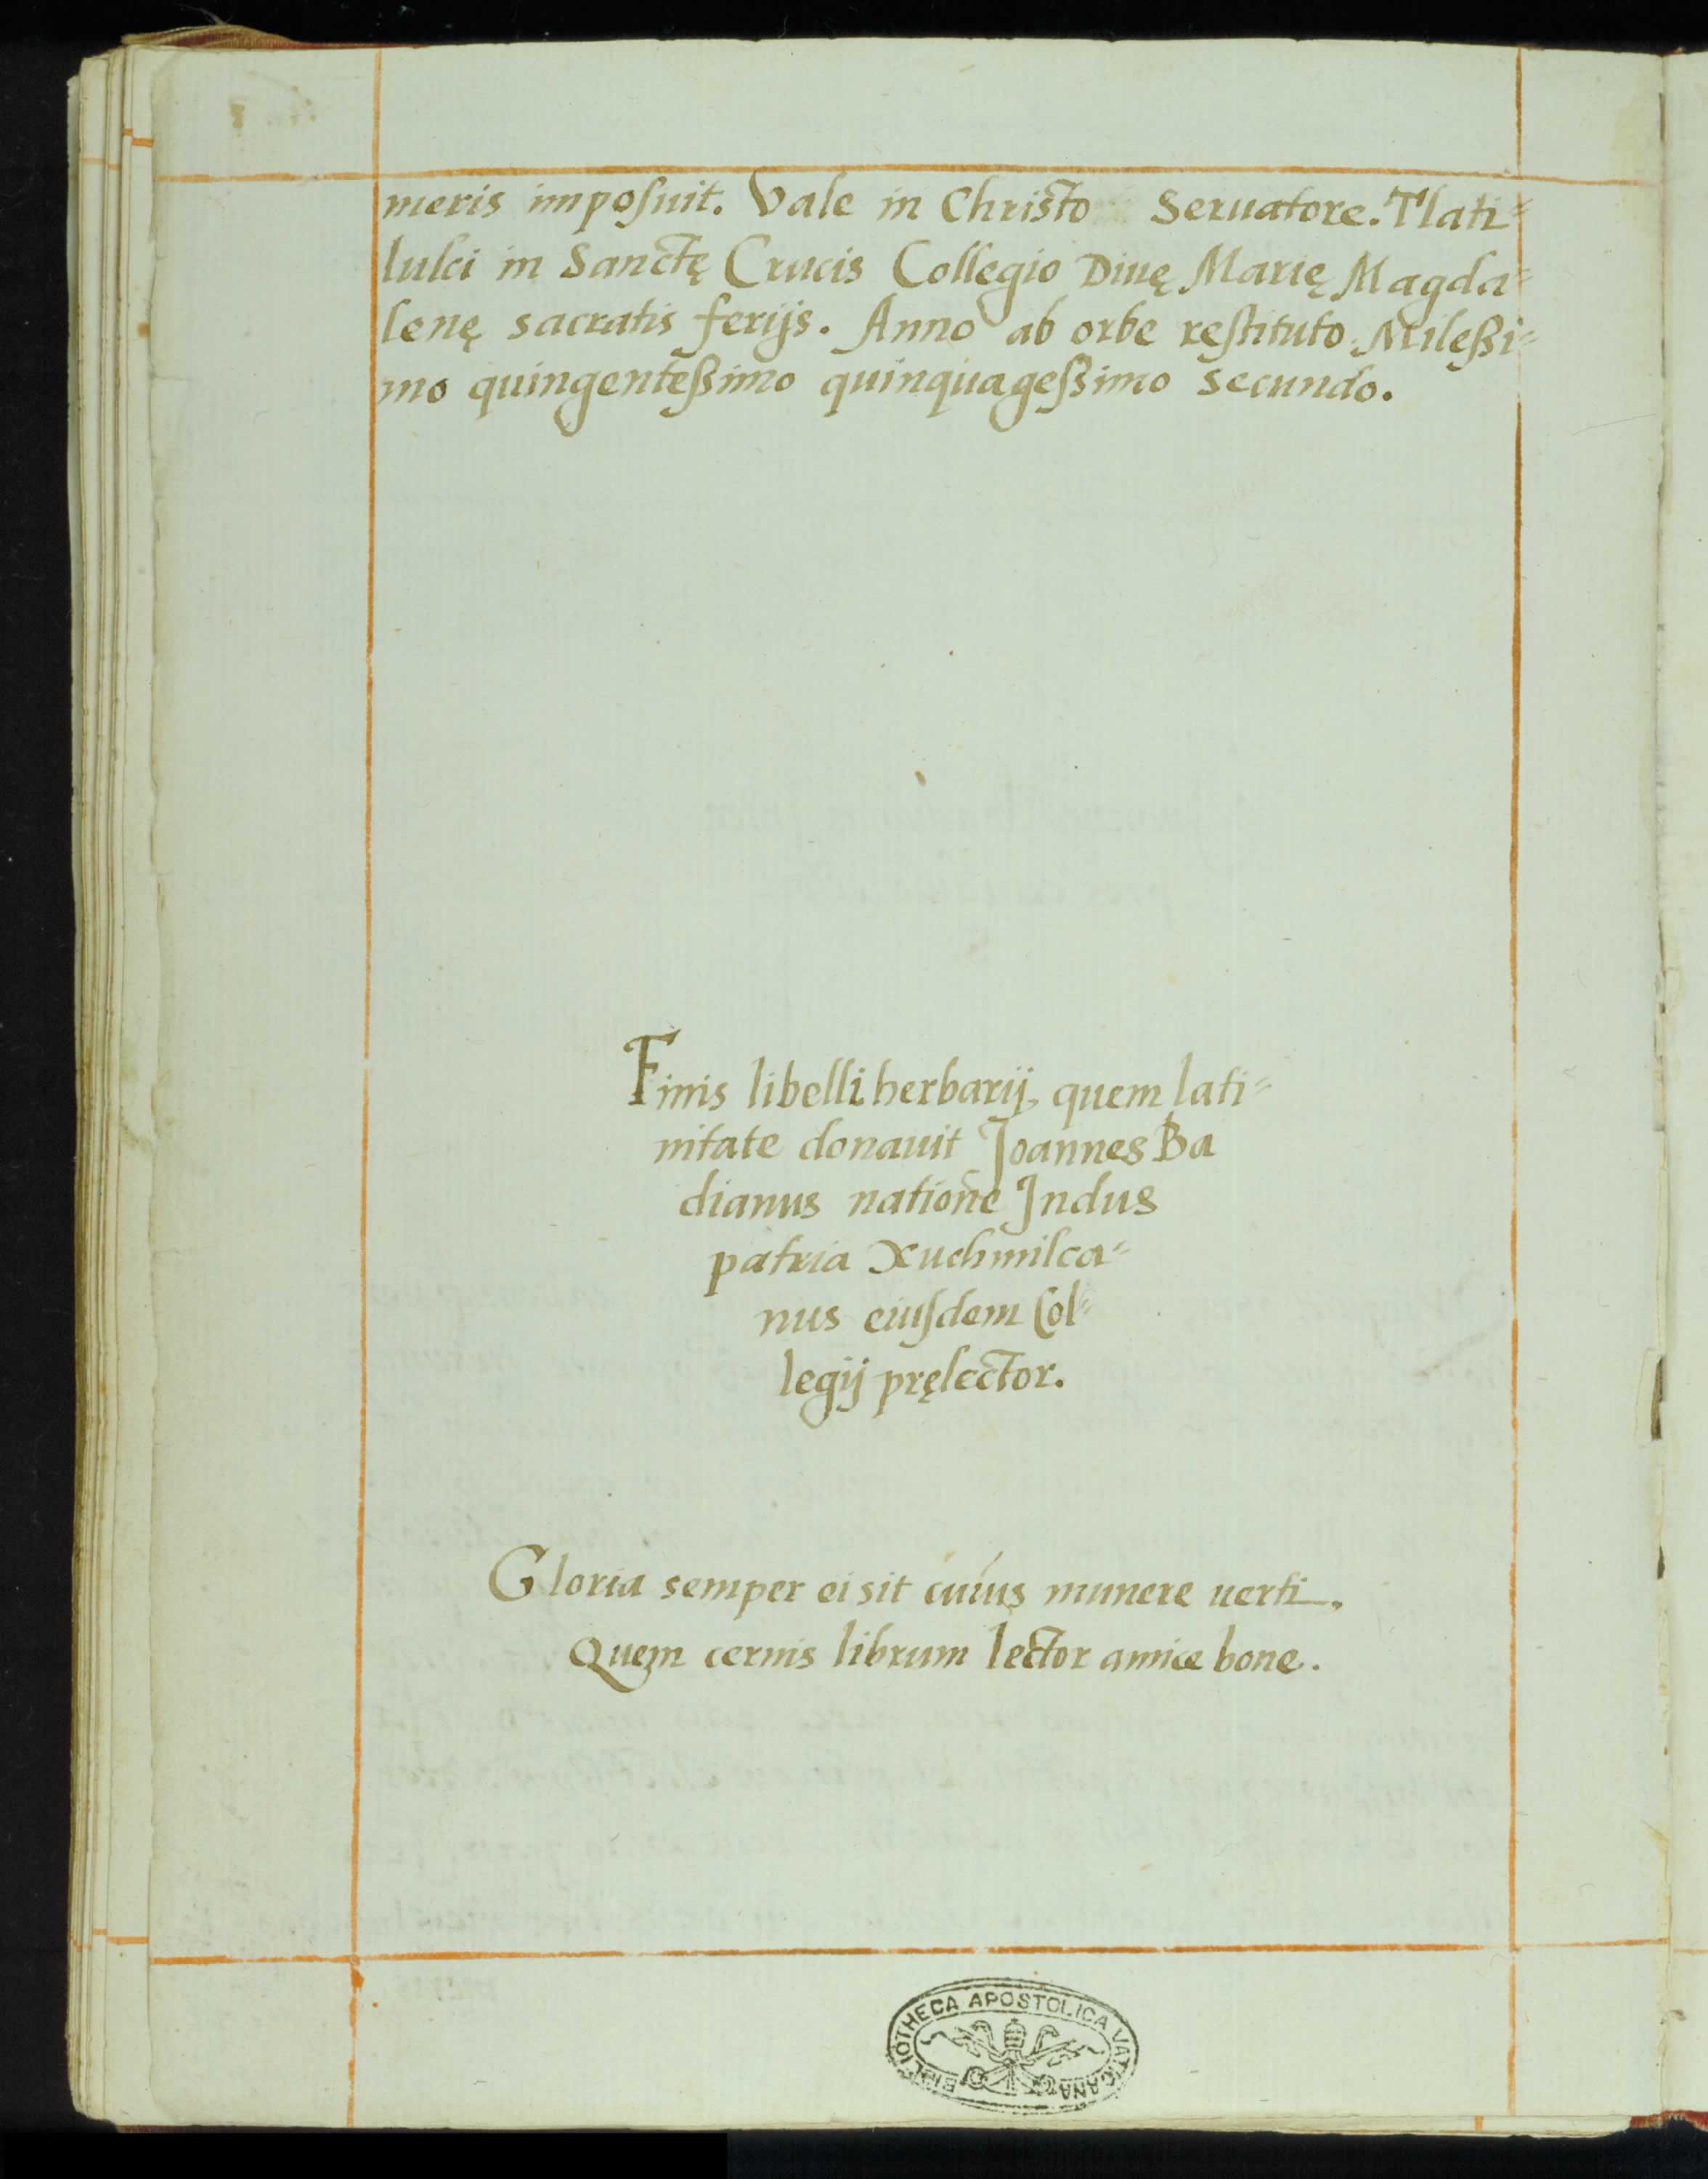 meris imposuit. Vale in Christo Seruatore. Tlati=
lulci in Sanctę Crucis Collegio Diuę Marię Magda=
lenę sacratis ferijs. Anno ab orbe restituto Mileßi=
mo quingenteßimo quinquageßimo secundo.
Finis libelli herbarij, quem lati=
nitate donauit Joannes Ba
dianus natione Jndus
patria Xuchmilca=
nus eiusdem Col=
legij pręlector.
Gloria semper ei sit cuius munere uerti.
Quem cernis librum lector amice bone.
BIBLIOTHECA APOSTOLICA VATICANA